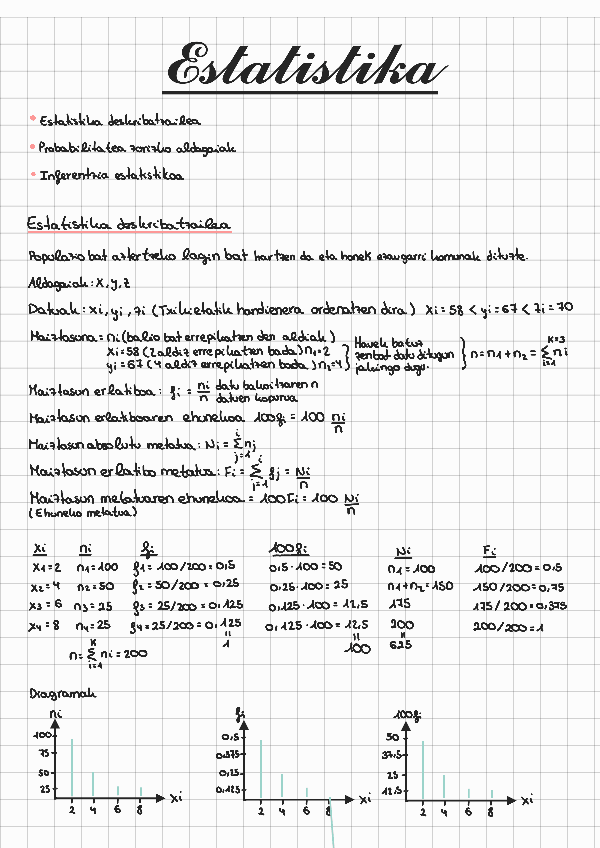 Estatistika
• Estatistika deskribatzailea
• Probabilitatea zorizko aldagaiak
• Inferentzia estatistikoa
Estatistika deskribatzailea
Populazio bat aztertzeko lagin bat hartzen da eta honek ezaugarri komunak dituzte.
Aldagaiak: x, y, z
Datuak: xi, yi, zi (Txikietatik handienera ordenatzen dira) xi = 58 < yi = 67 < zi = 70
Maiztasuna = ni (balio bat errepikatzen den aldiak)
xi = 58 (2 aldiz errepikatzen bada) n1 = 2
yi = 67 (4 aldiz errepikatzen bada) n2 = 4
Hauek batuz
zenbat datu ditugun
jakingo dugu.
n = n1 + n2 = K=3 Σ i=1 ni
Maiztasun erlatiboa: fi = ni/n datu bakoitzaren n / datuen kopurua
Maiztasun erlatiboaren ehunekoa 100fi = 100 ni/n
Maiztasun absolutu metatua: Ni = i Σ j=1 nj
Maiztasun erlatibo metatua: Fi = i Σ j=1 fj = Ni/n
Maiztasun metatuaren ehunekoa = 100Fi = 100 Ni/n
(Ehuneko metatua)
xi ni fi 100fi Ni Fi
x1 = 2 n1 = 100 f1 = 100/200 = 0,5 0,5·100 = 50 n1 = 100 100/200 = 0,5
x2 = 4 n2 = 50 f2 = 50/200 = 0,25 0,25·100 = 25 n1+n2 = 150 150/200 = 0,75
x3 = 6 n3 = 25 f3 = 25/200 = 0,125 0,125·100 = 12,5 175 175/200 = 0,875
x4 = 8 n4 = 25 f4 = 25/200 = 0,125 0,125·100 = 12,5 200 200/200 = 1
= 1 = 100 = 625
n = K Σ i=1 ni = 200
Diagramak
ni fi 100fi
100 0,5 50
75 0,375 37,5
50 0,25 25
25 0,125 12,5
2 4 6 8 xi 2 4 6 8 xi 2 4 6 8 xi